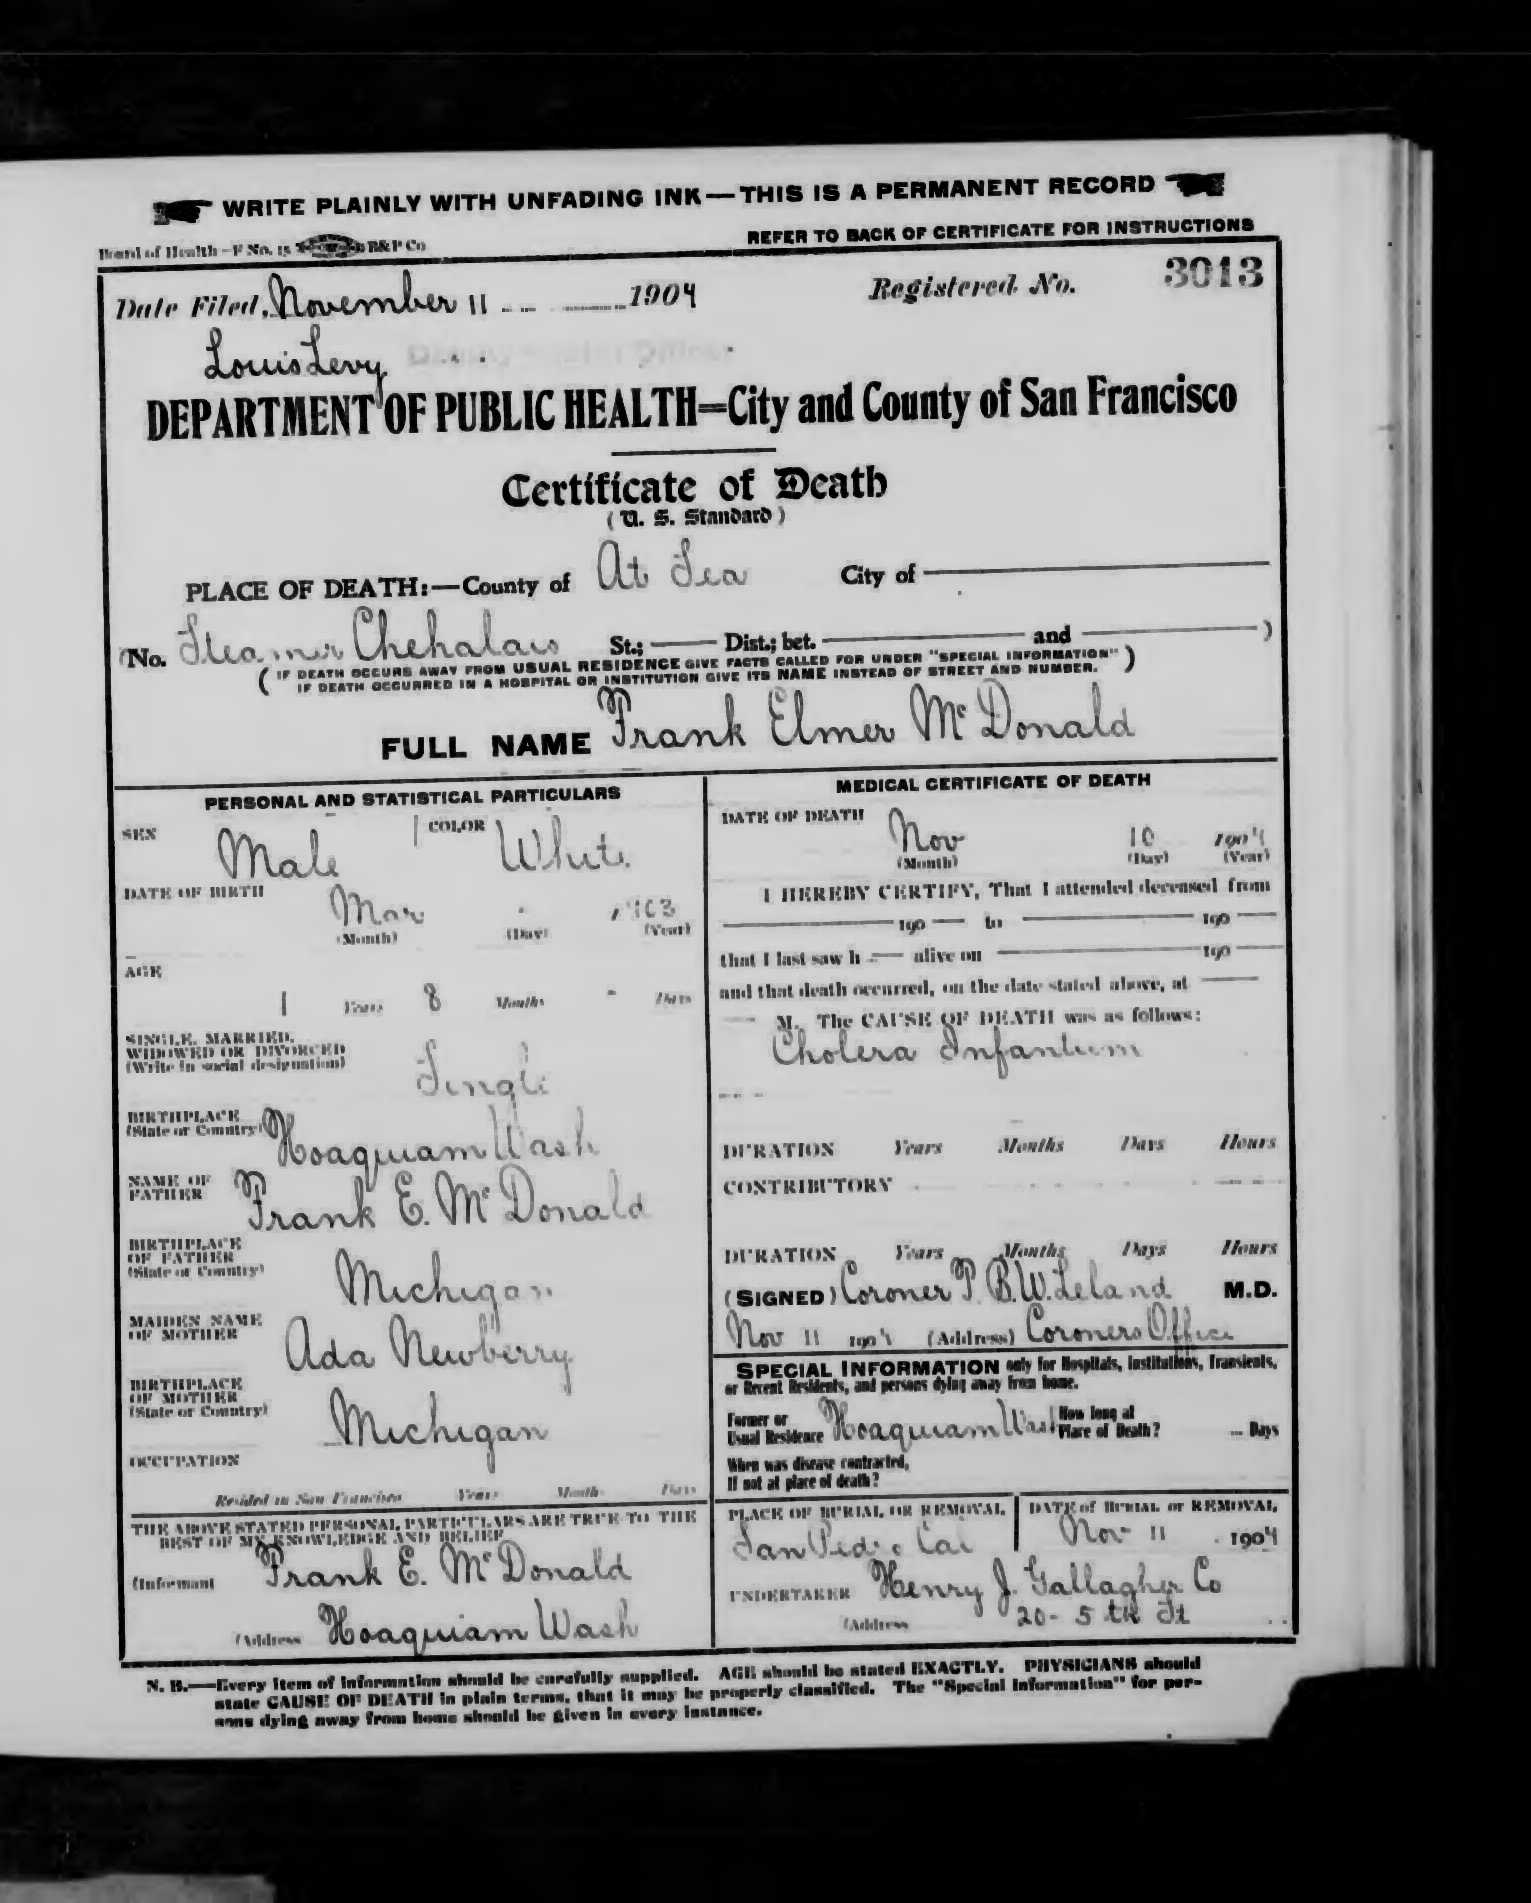 WRITE PLAINLY WITH UNFADING INK—THIS IS A PERMANENT RECORD
Board of Health—F No. 15 B&P Co
REFER TO BACK OF CERTIFICATE FOR INSTRUCTIONS
Date Filed, November 11 1904 Registered No. 3013
Louis Levy
DEPARTMENT OF PUBLIC HEALTH=City and County of San Francisco
Certificate of Death
(U. S. Standard)
PLACE OF DEATH:—County of At Sea City of
(No. Steamer Chehalais St.; Dist.; bet. and )
( IF DEATH OCCURS AWAY FROM USUAL RESIDENCE GIVE FACTS CALLED FOR UNDER "SPECIAL INFORMATION" )
IF DEATH OCCURRED IN A HOSPITAL OR INSTITUTION GIVE ITS NAME INSTEAD OF STREET AND NUMBER.
FULL NAME Frank Elmer Mc Donald
PERSONAL AND STATISTICAL PARTICULARS
SEX Male COLOR White
DATE OF BIRTH Mar 1903
(Month) (Day) (Year)
AGE
1 Years 8 Months - Days
SINGLE, MARRIED,
WIDOWED OR DIVORCED
(Write in social designation) Single
BIRTHPLACE
(State or Country) Hoaquiam Wash
NAME OF
FATHER Frank E. Mc Donald
BIRTHPLACE
OF FATHER
(State or Country) Michigan
MAIDEN NAME
OF MOTHER Ada Newberry
BIRTHPLACE
OF MOTHER
(State or Country) Michigan
OCCUPATION
Resided in San Francisco Years Months Days
THE ABOVE STATED PERSONAL PARTICULARS ARE TRUE TO THE
BEST OF MY KNOWLEDGE AND BELIEF
(Informant Frank E. Mc Donald
(Address Hoaquiam Wash
MEDICAL CERTIFICATE OF DEATH
DATE OF DEATH Nov 10 1904
(Month) (Day) (Year)
I HEREBY CERTIFY, That I attended deceased from
190 to 190
that I last saw h alive on 190
and that death occurred, on the date stated above, at
M. The CAUSE OF DEATH was as follows:
Cholera Infantum
DURATION Years Months Days Hours
CONTRIBUTORY
DURATION Years Months Days Hours
(SIGNED) Coroner P. B.W. Leland M.D.
Nov 11 1904 (Address) Coroners Office
SPECIAL INFORMATION only for Hospitals, Institutions, Transients,
or Recent Residents, and persons dying away from home.
Former or
Usual Residence Hoaquiam Wash How long at
Place of Death? Days
When was disease contracted,
If not at place of death?
PLACE OF BURIAL OR REMOVAL DATE of BURIAL or REMOVAL
San Pedro Cal Nov 11 1904
UNDERTAKER Henry J. Gallagher Co
(Address 20- 5th St
N. B.—Every item of information should be carefully supplied. AGE should be stated EXACTLY. PHYSICIANS should
state CAUSE OF DEATH in plain terms, that it may be properly classified. The "Special Information" for per-
sons dying away from home should be given in every instance.